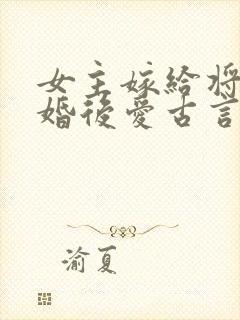 女主嫁給将
婚後愛古言
渝夏